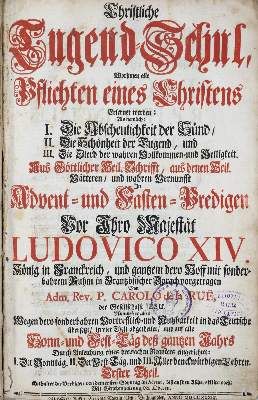 Christliche
Tugend-Schul,
Worinnen alle
Pflichten eines Christens
Erlernet werden;
Als nemlich:
I. Die Abscheulichkeit der Sünd,
II. Die Schönheit der Tugend, und
III. Die Zierd der wahren Vollkommen- und Heiligkeit.
Auß Göttlicher Heil. Schrifft, aus denen Heil.
Vätteren, und wahren Vernunfft
In
Advent- und Fasten-Predigen
Vor Ihro Majestät
LUDOVICO XIV.
König in Franckreich, und gantzem dero Hoff mit sonder-
bahrem Ruhm in Frantzösischer Sprach vorgetragen
Von
Adm. Rev. P. CAROLO de la RUË,
der Gesellschafft JESU.
Wegen dero sonderbahren Vortrefflich- und Nutzbarkeit in das Teutsche
übersetzt, in vier Theil abgetheilt, und auf alle
Sonn- und Fest-Täg des gantzen Jahrs
Erster Theil.